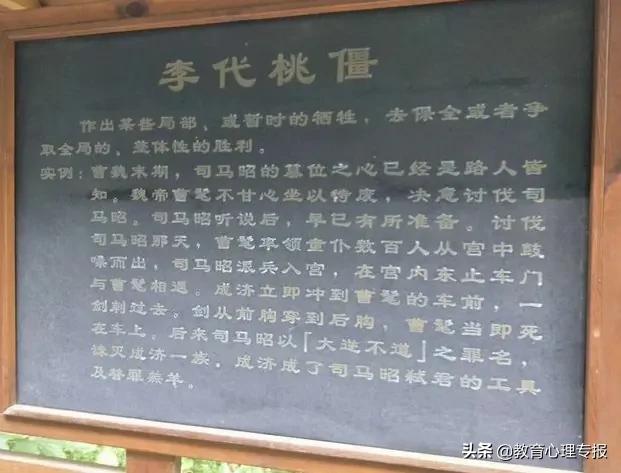 李代桃僵
作出某些局部、或暂时的牺牲,去保全或者争
取全局的、整体性的胜利。
实例:曹魏末期,司马昭的篡位之心已经是路人皆
知。魏帝曹髦不甘心坐以待废,决意讨伐司
马昭。司马昭听说后,早已有所准备。讨伐
司马昭那天,曹髦率领童仆数百人从宫中鼓
噪而出,司马昭派兵入宫,在宫内东止车门
与曹髦相遇。成济立即冲到曹髦的车前,一
剑刺过去。剑从前胸穿到后胸,曹髦当即死
在车上。后来司马昭以「大逆不道」之罪名,
诛灭成济一族,成济成了司马昭弑君的工具
及替罪羔羊。
头条 @教育心理专报